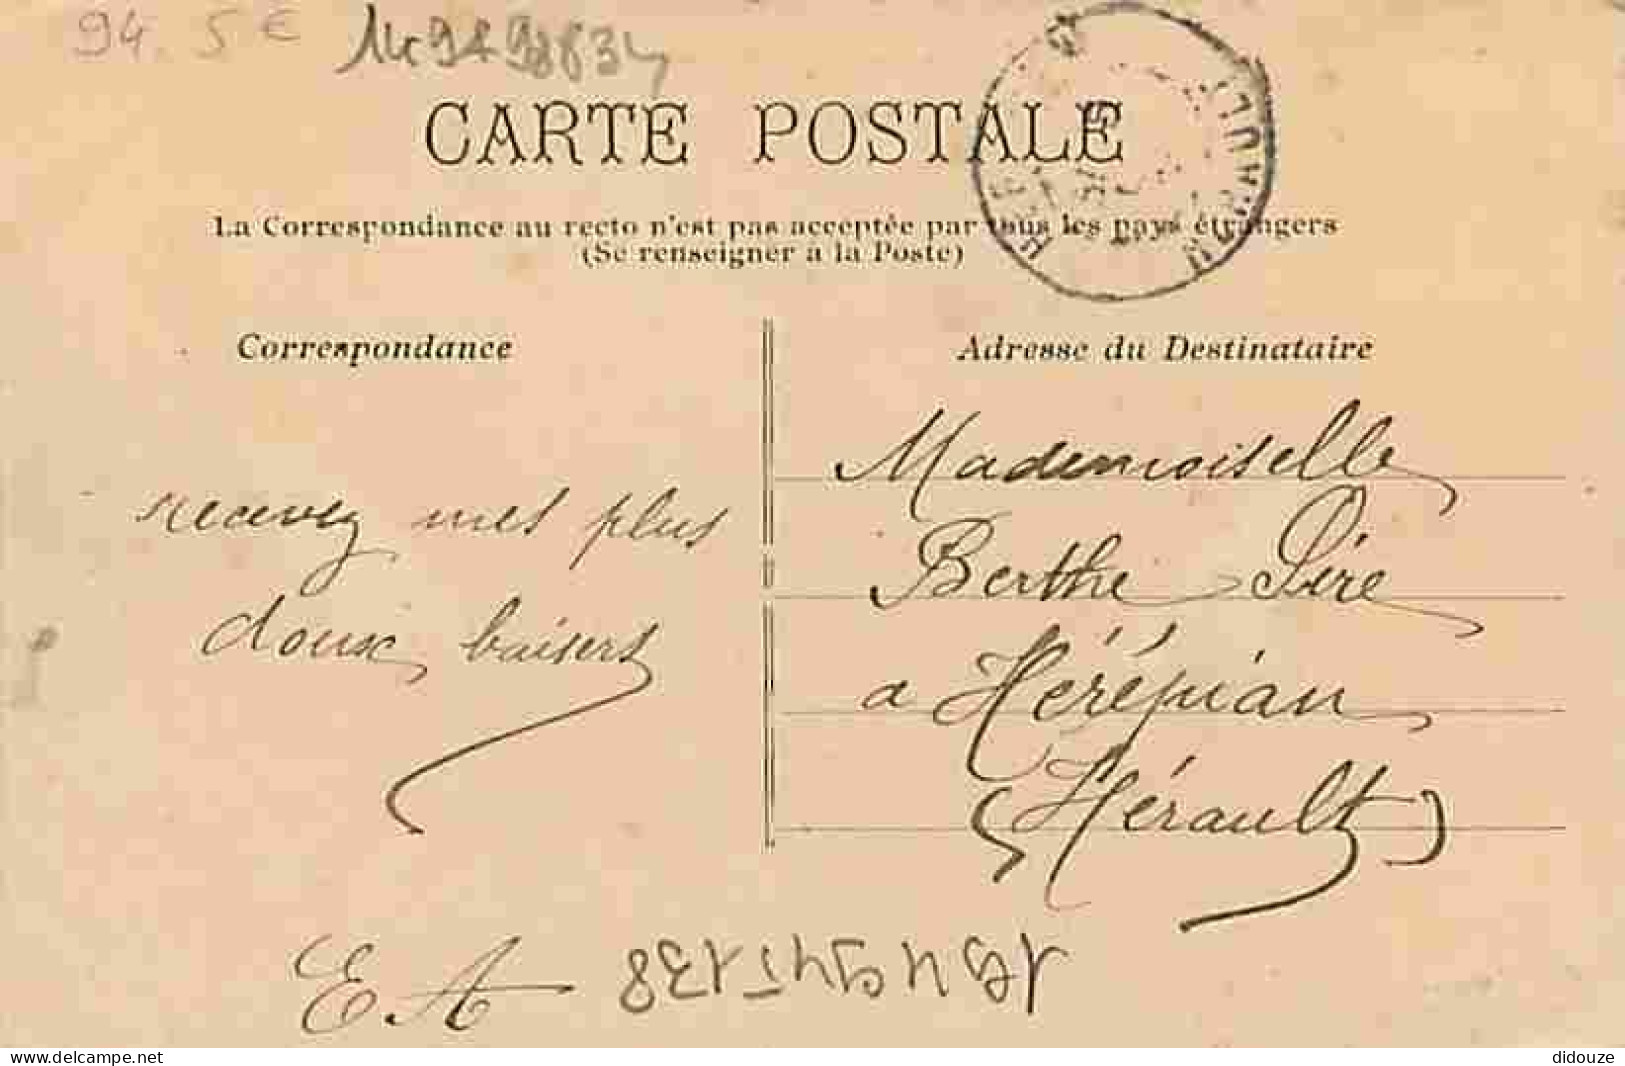 94. 5 €
CARTE POSTALE
La Correspondance au recto n'est pas acceptée par tous les pays étrangers
(Se renseigner à la Poste)
Correspondance
Adresse du Destinataire
recevez mes plus
doux baisers
Mademoiselle
Berthe Père
a Hérépian
(Hérault)
E A
delcampe.net
didouze